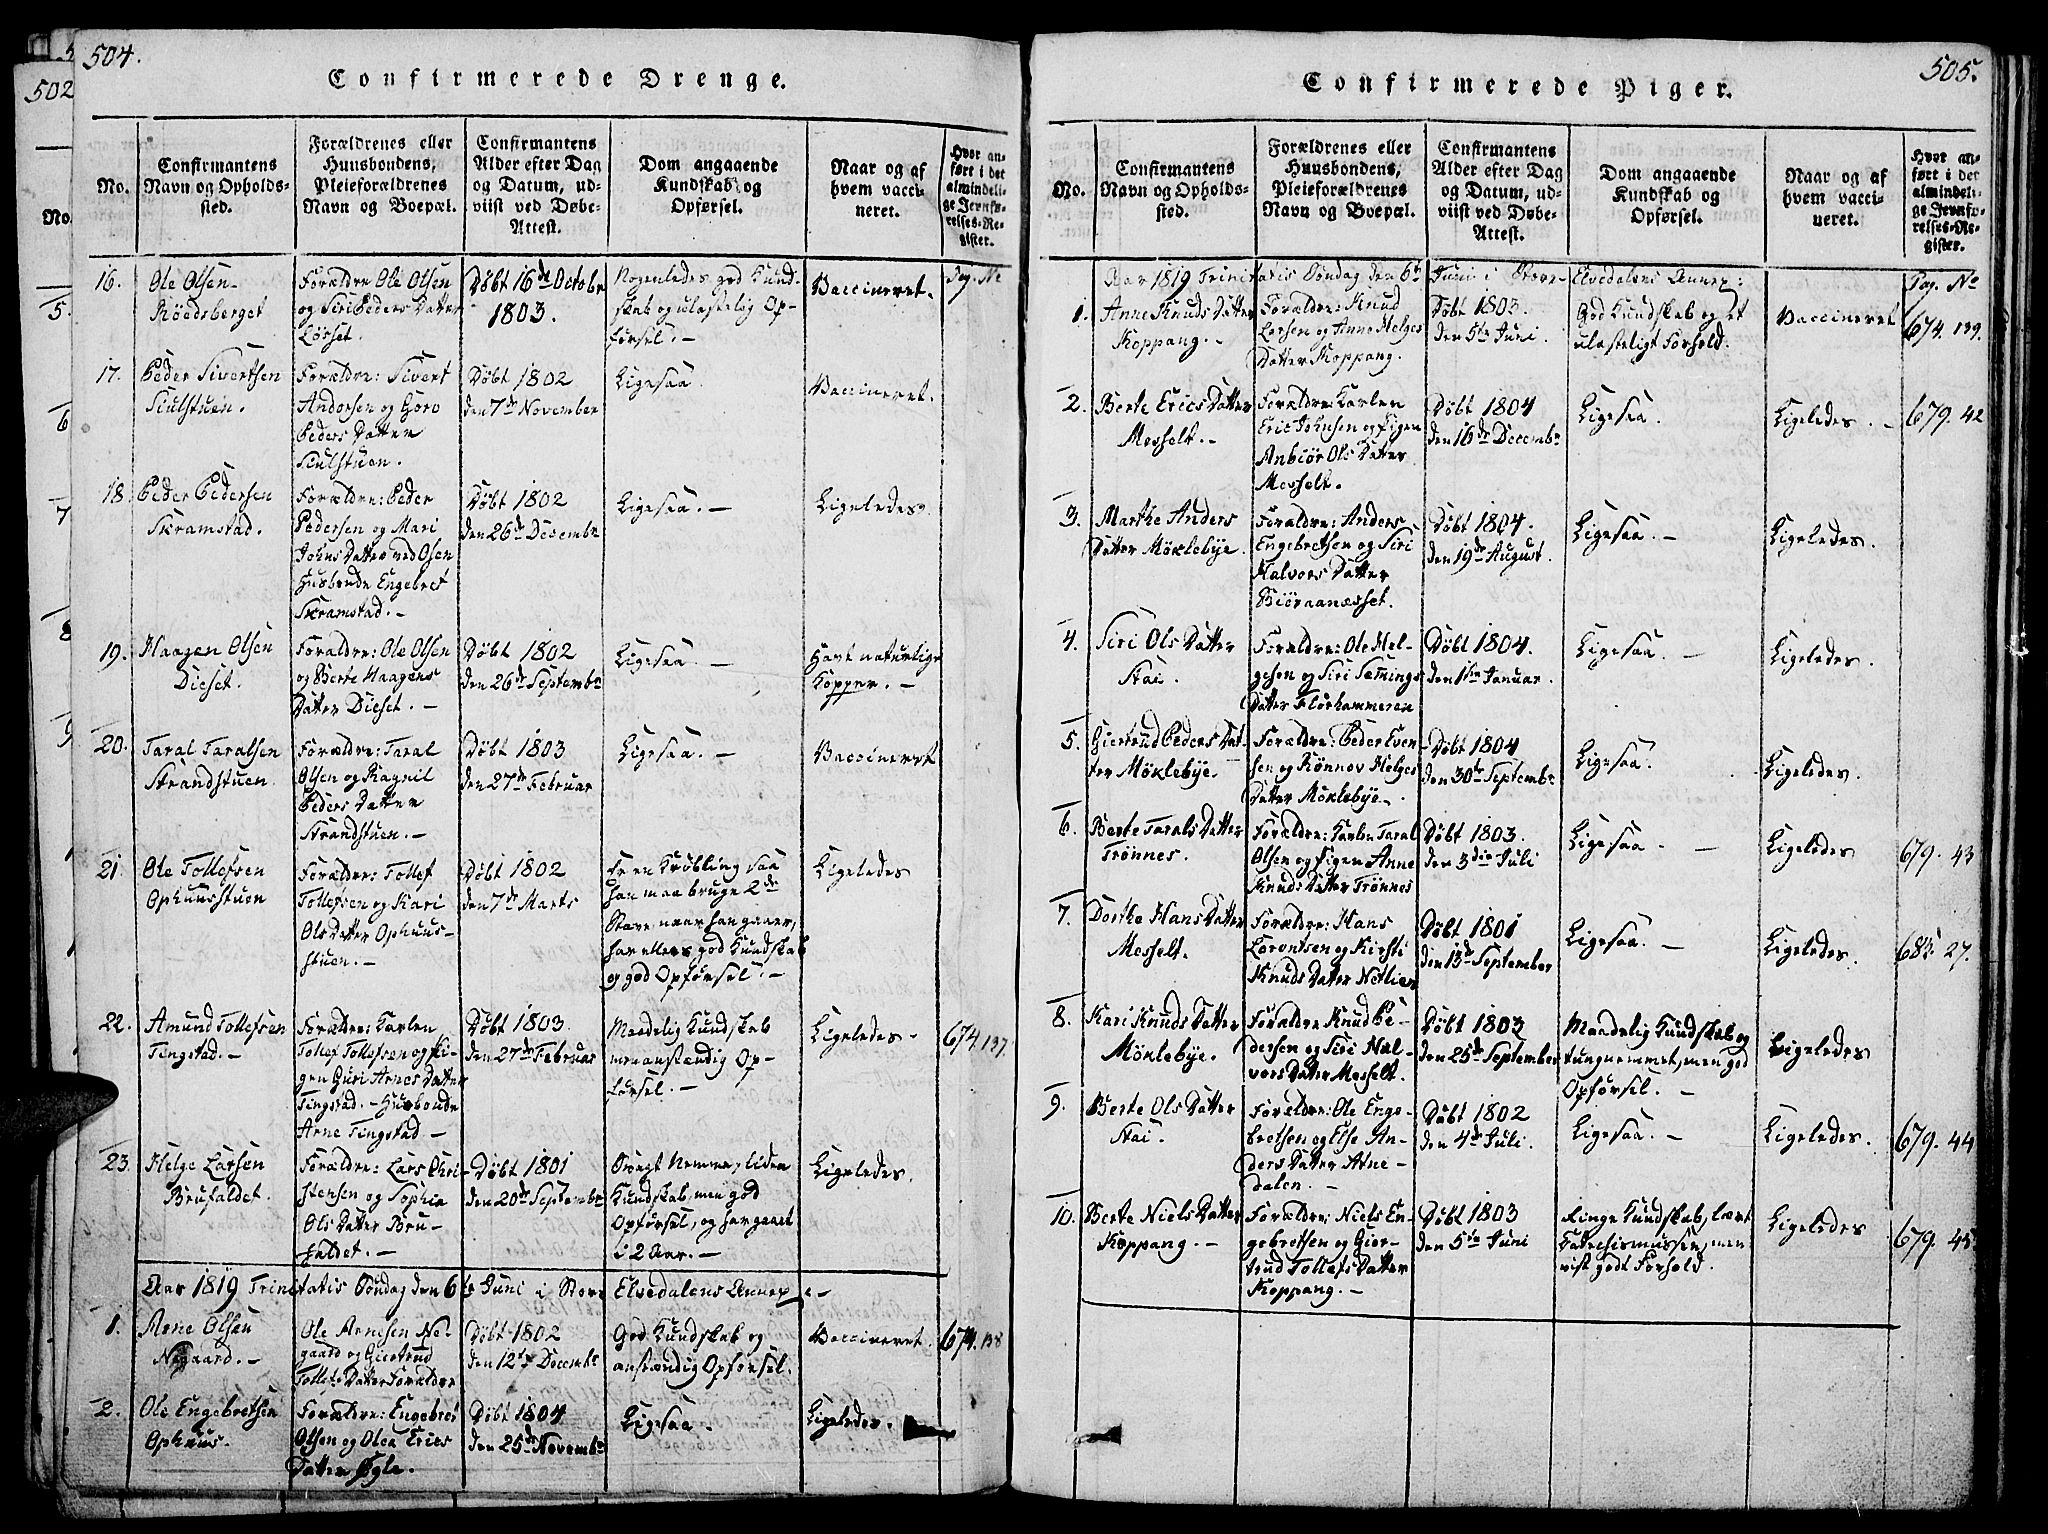 504.
Confirmerede Drenge.
No.
Confirmantens
Navn og Opholds-
sted.
Forældrenes eller
Huusbondens,
Pleieforældrenes
Navn og Boepæl.
Confirmantens
Alder efter Dag
og Datum, ud-
viist ved Døbe-
Attest.
Dom angaaende
Kundskab og
Opførsel.
Naar og af
hvem vacci-
neret.
Hvor an-
ført i det
almindeli-
ge Jevnfø-
relses-Re-
gister.
Pag. No
16.
Ole Olsen
Röedsberget
Forældre Ole Olsen
og Siri Peders Datter
Lörset.
Döbt 16de Octobr
1803.
Nogenledes god Kund-
skab og ulastelig Op-
førsel. -
Vaccineret.
17.
Peder Sivertsen
Sculstuen.
Forældre: Sivert
Andersen og Goro
Peders Datter
Sculstuen.
Döbt 1802
den 7de November
Ligesaa.
Vaccineret.
18.
Peder Pedersen
Skramstad.
Forældre: Peder
Pedersen og Mari
Johns Datter ved Osen
Husbonde Engebret
Skramstad. -
Döbt 1802
den 26de Decembr
Ligesaa. -
Ligeledes.
19.
Haagen Olsen
Dieset.
Forældre: Ole Olsen
og Berte Haagens
Datter Dieset. -
Döbt 1802
den 26de Septembr
Ligesaa. -
Havt naturlige
Kopper. -
20.
Taral Taralsen
Strandstuen.
Forældre: Taral
Olsen og Ragnil
Peders Datter
Strandstuen. -
Döbt 1803
den 27de Februar
Ligesaa. -
Vaccineret
21.
Ole Tollefsen
Ophuusstuen
Forældre: Tollef
Tollefsen og Kari
Ols Datter Ophuus-
stuen. -
Döbt 1802
den 7de Marts
Er en Kröbling saa
han maa bruge 2de
Stave naar han gaaer,
har ellers god Kundskab
og god Opförsel. -
Ligeledes
22.
Amund Tollefsen
Tingstad. -
Forældre: Karlen
Tollef Tollefsen og Pi-
gen Guri Arnes Datter
Tingstad. - Husbonde
Arne Tingstad -
Döbt 1803.
den 27de Februar
Maadelig Kundskab
men anstændig Op-
försel. -
Ligeledes -
674. 137.
23.
Helge Larsen
Brufaldet.
Forældre: Lars Chri-
stensen og Sophia
Ols Datter Bru-
faldet. -
Döbt 1801
den 20de Septembr
Svagt Nemme, liden
Kundskab, men god
Opförsel, og har gaaet
i 2 Aar. -
Ligeledes.
Aar 1819 Trinitatis Söndag den 6te Juni i Store Elvedalens Annex: -
1.
Arne Olsen
Negaard. -
Ole Arnesen Ne-
gaard og Giertrud
Tollefs Datter Forældre
Döbt 1802
den 12te Decembr
God Kundskab og
anstændig Opförsel.
Vaccineret.
674. 138
2.
Ole Engebretsen
Ophuus.
Forældre: Engebret
Olsen og Olea Erics
Datter Øgle.
Döbt 1804
den 25de Novembr
Ligesaa.
Ligeledes.
502
No.
5.
6
7
8
9
505.
Confirmerede Piger.
No.
Confirmantens
Navn og Opholds-
sted.
Forældrenes eller
Huusbondens,
Pleieforældrenes
Navn og Boepæl.
Confirmantens
Alder efter Dag
og Datum, ud-
viist ved Døbe-
Attest.
Dom angaaende
Kundskab og
Opførsel.
Naar og af
hvem vacci-
neret.
Hvor an-
ført i det
almindeli-
ge Jevnfø-
relses-Re-
gister.
Pag. No
Aar 1819 Trinitatis Söndag den 6te Juni i Store Elvedalens Annex:
1.
Anne Knuds Datter
Koppang. -
Forældre: Knud
Larsen og Anne Helges
Datter Koppang.
Döbt 1803.
den 5te Juni.
God Kundskab og et
ulasteligt Forhold.
Vaccineret
674. 139.
2.
Berte Erics Datter
Messelt. -
Forældre: Karlen
Eric Johnsen og Pigen
Anbiör Ols Datter
Messelt.
Döbt 1804
den 16de Decembr
Ligesaa.
Ligeledes. -
679. 42
3.
Marthe Anders
Datter Möklebye.
Forældre: Anders
Engebretsen og Siri
Halvors Datter
Biöraanæsset.
Döbt 1804.
den 19de August.
Ligesaa. -
Ligeledes.
4.
Siri Ols Datter
Stai.
Forældre: Ole Hel-
gesen og Siri Sæmings
Datter Florhammeren
Döbt 1804.
den 1ste Januar.
Ligesaa. -
Ligeledes.
5.
Giertrud Peders Dat-
ter Möklebye.
Forældre: Peder Even-
sen og Rönnov Helges
Datter Möklebye. -
Döbt 1804
den 30te Septembr
Ligesaa.
Ligeledes.
6.
Berte Tarals Datter
Trönnes.
Forældre: Karlen Taral
Olsen og Pigen Anne
Knuds Datter Trönnes
Döbt 1803.
den 3die Juli
Ligesaa. -
Ligeledes
679. 43
7.
Dorthe Hans Datter
Messelt.
Forældre: Hans
Larentsen og Kirsti
Knuds Datter Netlien
Döbt 1801
den 13de September
Ligesaa. -
Ligeledes.
683. 27.
8.
Kari Knuds Datter
Möklebye.
Forældre Knud Pe-
dersen og Siri Hal-
vors Datter Messelt.
Döbt 1803
den 25de September
Maadelig Kundskab og
tungnemmet, men god
Opförsel. -
Ligeledes
9.
Berte Ols Datter
Stai.
Forældre: Ole Enge-
bretsen og Else An-
ders Datter Atne-
dalen. -
Döbt 1802
den 4de Juli.
Ligesaa. -
Ligeledes.
679. 44
10.
Berte Niels Datter
Koppang. -
Forældre: Niels En-
gebretsen og Gier-
trud Tollefs Datter
Koppang. -
Döbt 1803
den 5te Juni
Ringe Kundskab, lært
Catechismussen, men
vist godt Forhold.
Ligeledes
679. 45